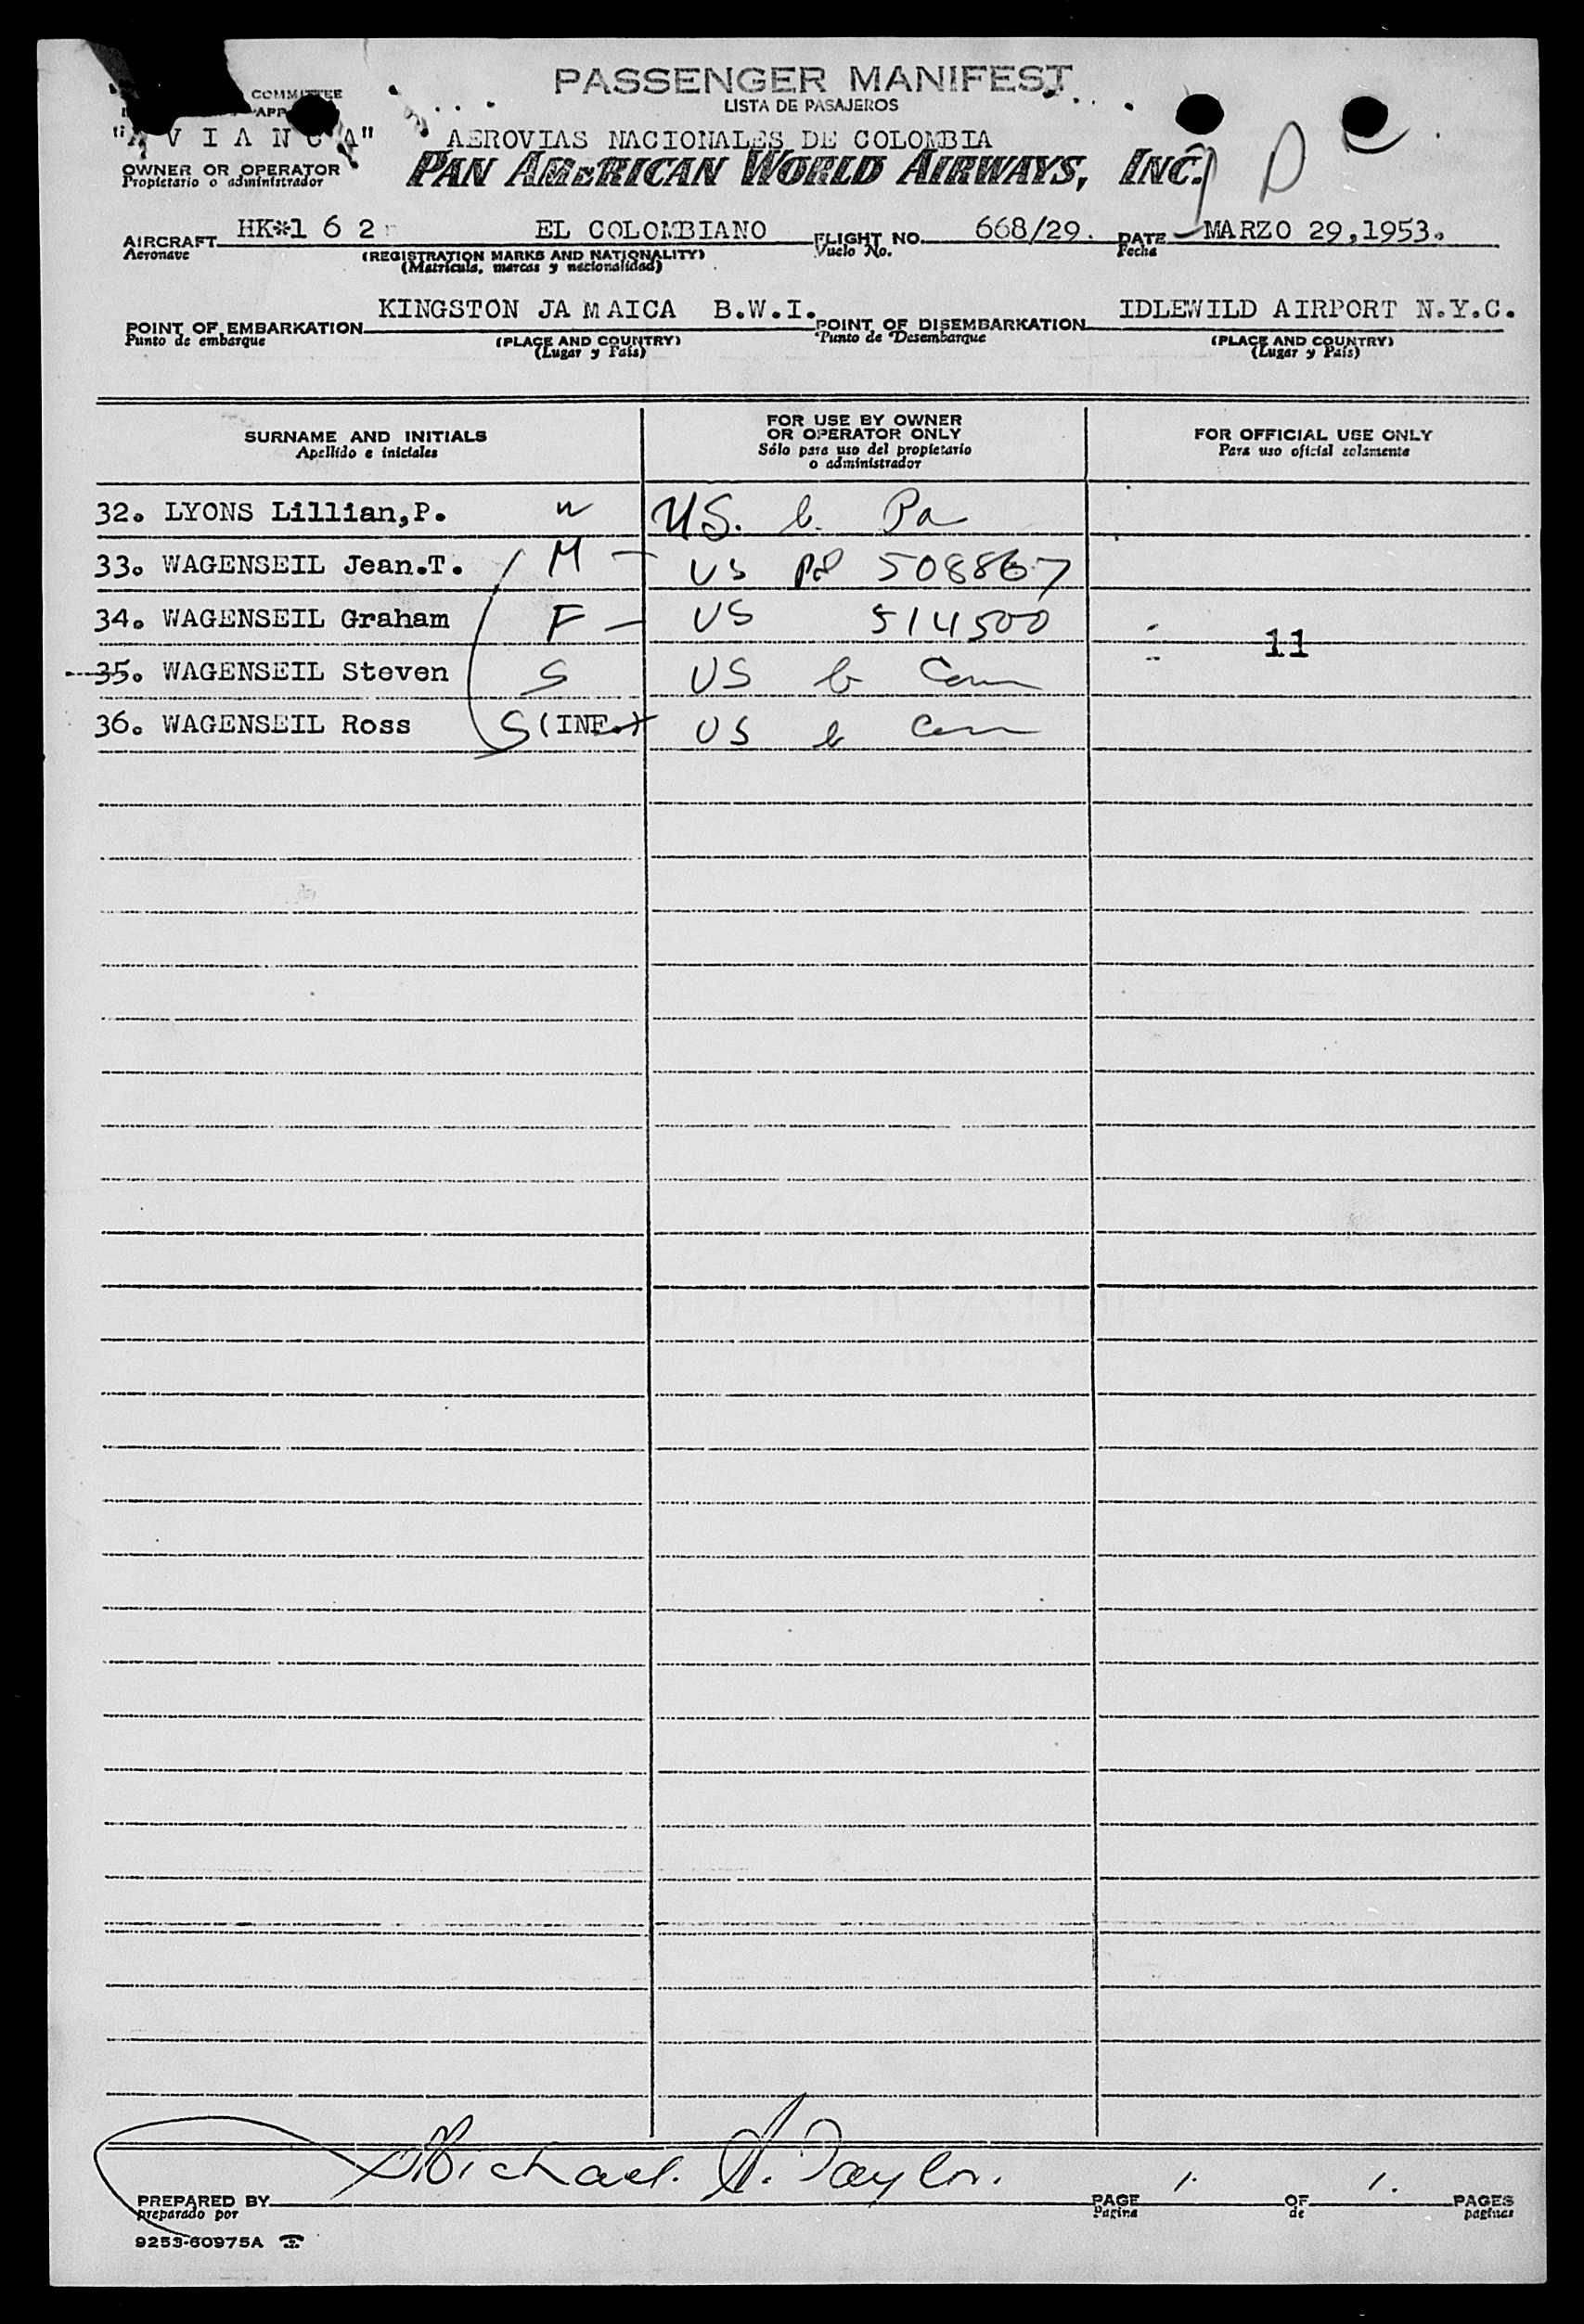 PASSENGER MANIFEST
LISTA DE PASAJEROS
COMMITTEE
"AVIANCA"
AEROVIAS NACIONALES DE COLOMBIA
OWNER OR OPERATOR
Propietario o administrador
PAN AMERICAN WORLD AIRWAYS, INC.
AIRCRAFT HK*1 6 2 EL COLOMBIANO FLIGHT NO. 668/29. DATE MARZO 29,1953.
Aeronave (REGISTRATION MARKS AND NATIONALITY) Vuelo No. Fecha
(Matrícula, marcas y nacionalidad)
POINT OF EMBARKATION KINGSTON JAMAICA B.W.I. POINT OF DISEMBARKATION IDLEWILD AIRPORT N.Y.C.
Punto de embarque (PLACE AND COUNTRY) Punto de Desembarque (PLACE AND COUNTRY)
(Lugar y País) (Lugar y País)
SURNAME AND INITIALS
Apellido e iniciales
FOR USE BY OWNER
OR OPERATOR ONLY
Sólo para uso del propietario
o administrador
FOR OFFICIAL USE ONLY
Para uso oficial solamente
32. LYONS Lillian,P. US. b. Pa
33. WAGENSEIL Jean.T. M - US 508867
34. WAGENSEIL Graham F - US 514500
11
35. WAGENSEIL Steven S US b Conn
36. WAGENSEIL Ross S (INF.) US b Conn
PREPARED BY Michael A. Taylor. PAGE 1. OF 1. PAGES
preparado por Pagina de paginas
9253-60975A